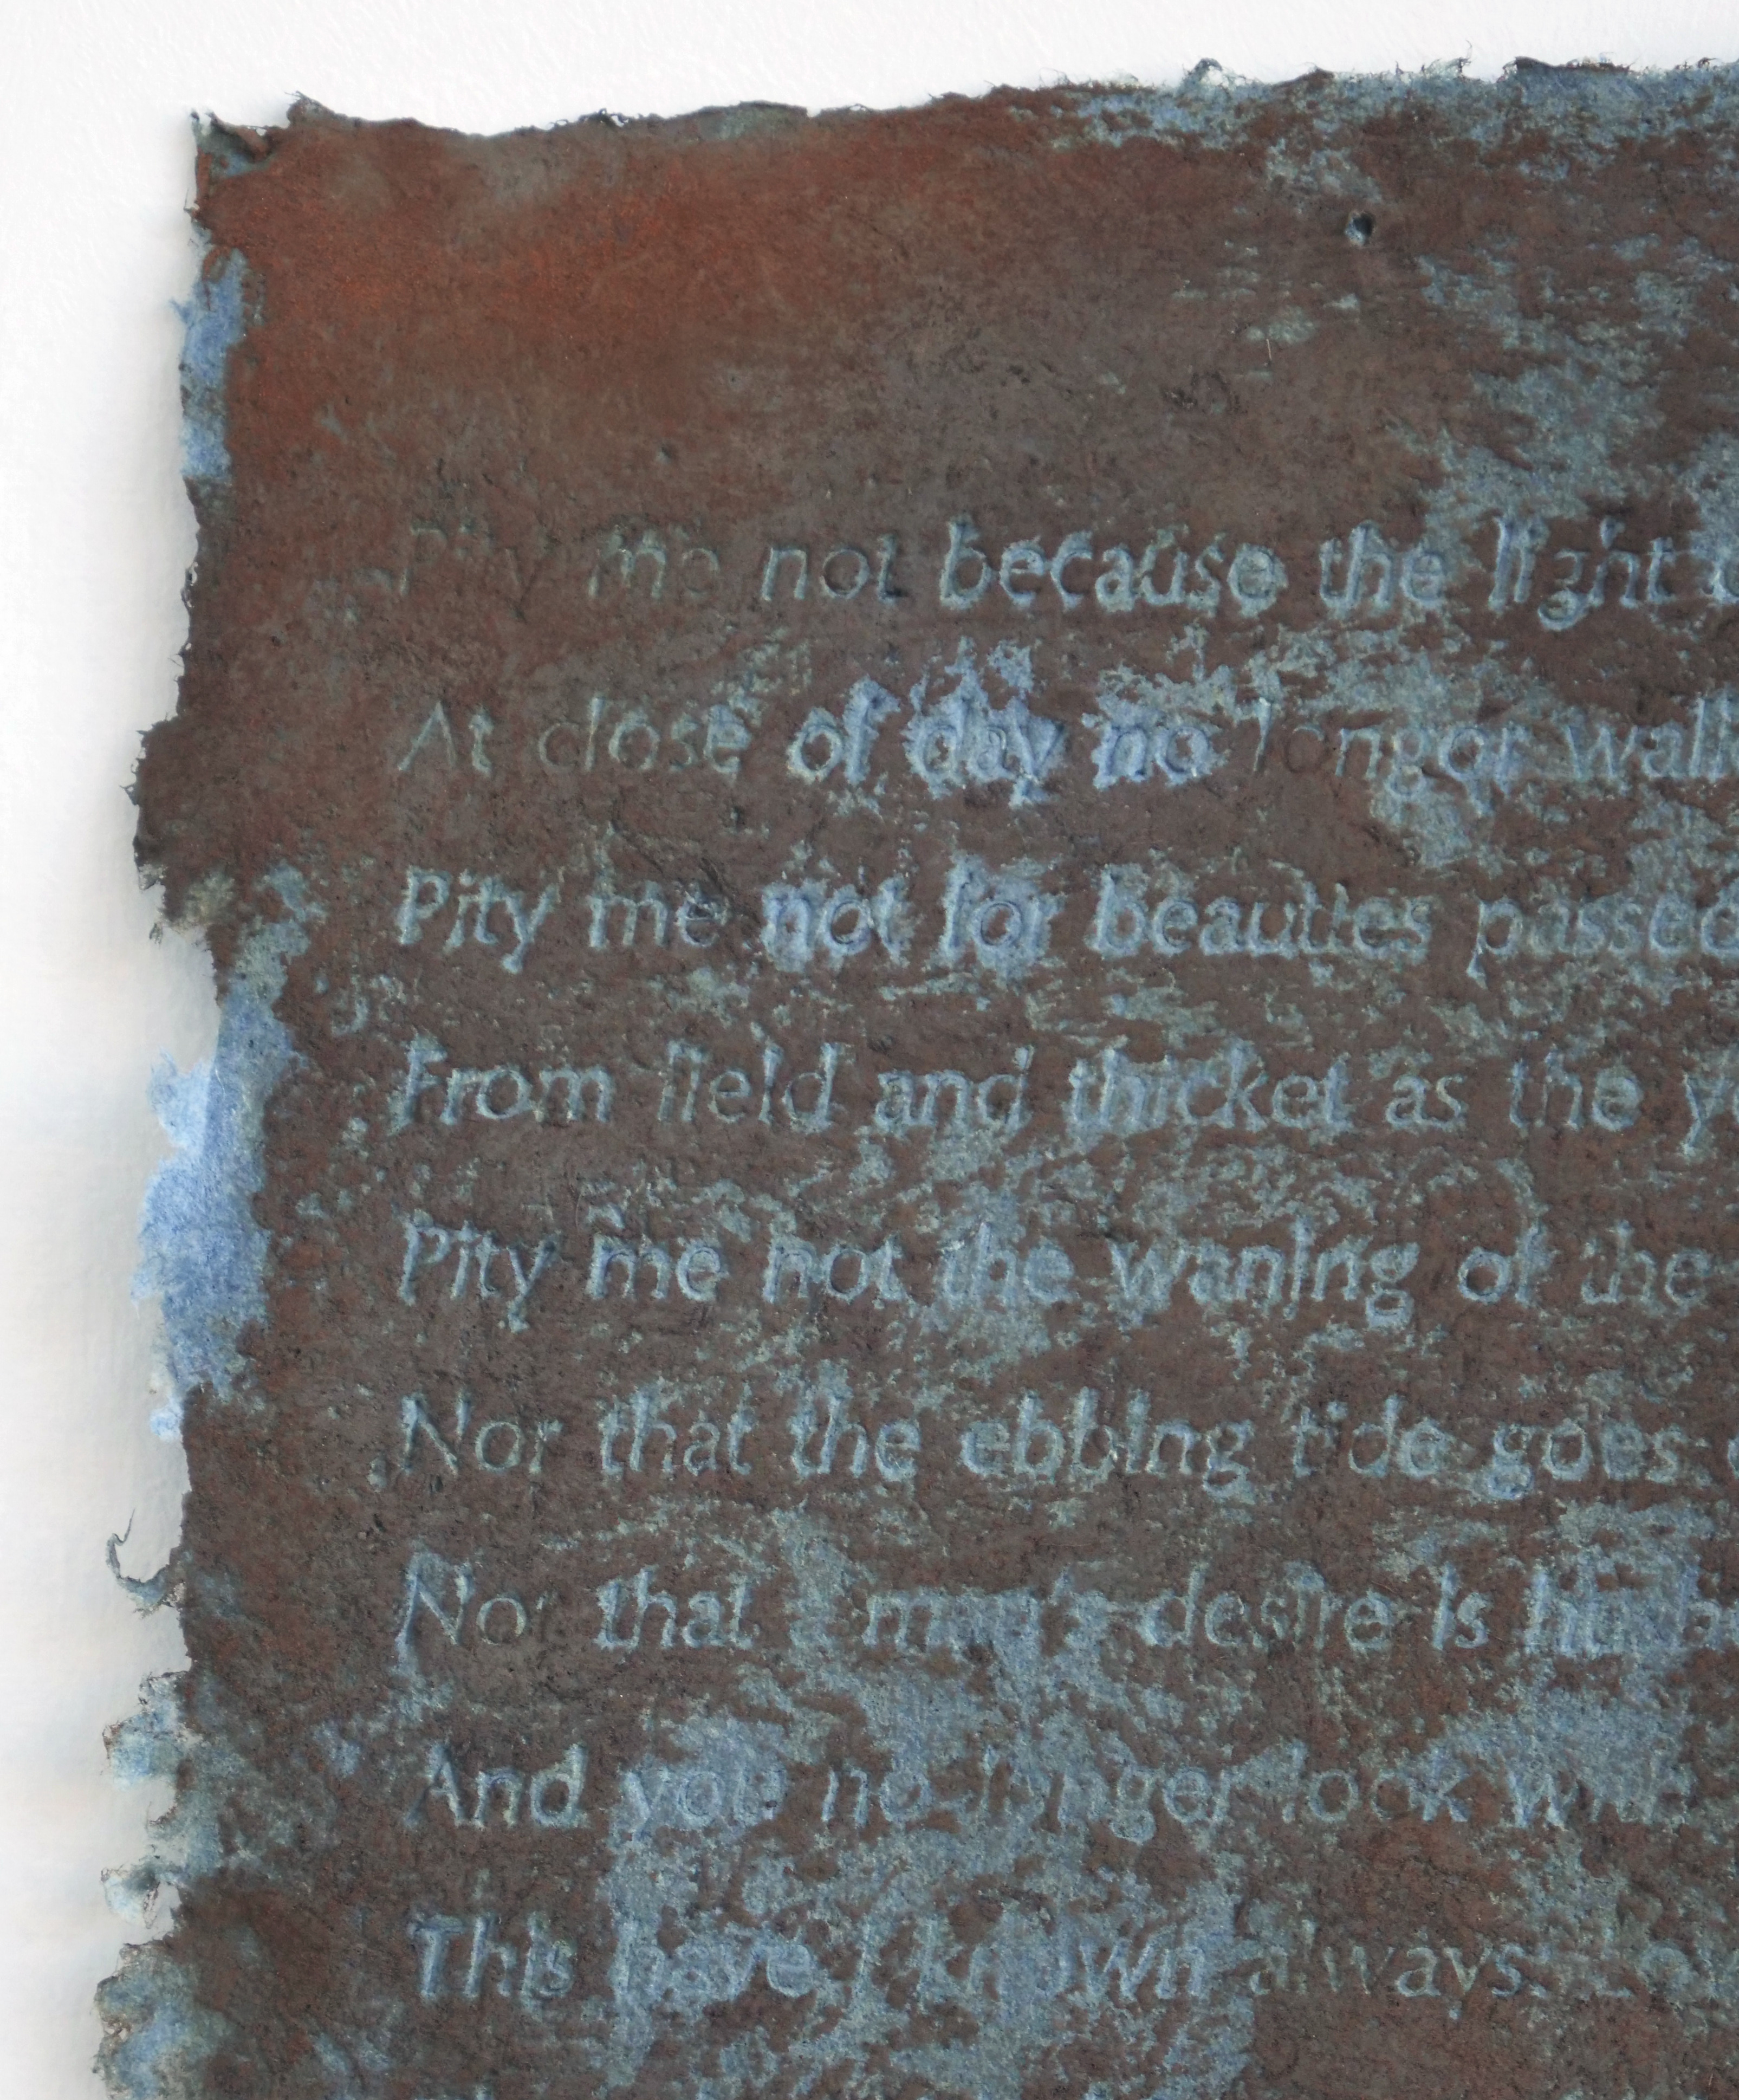 Pity me not because the light
At close of day no longer walk
Pity me not for beauties passed
From field and thicket as the ye
Pity me not the waning of the
Nor that the ebbing tide goes
Nor that a man's desire is hushed
And you no longer look with
This have I known always: